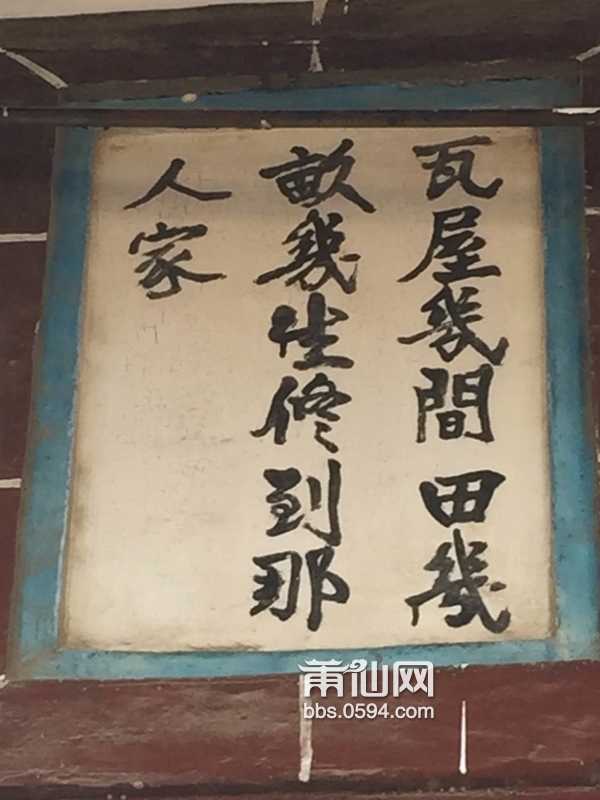 瓦屋幾間田幾
畝幾生修到那
人家
莆仙网
bbs.0594.com